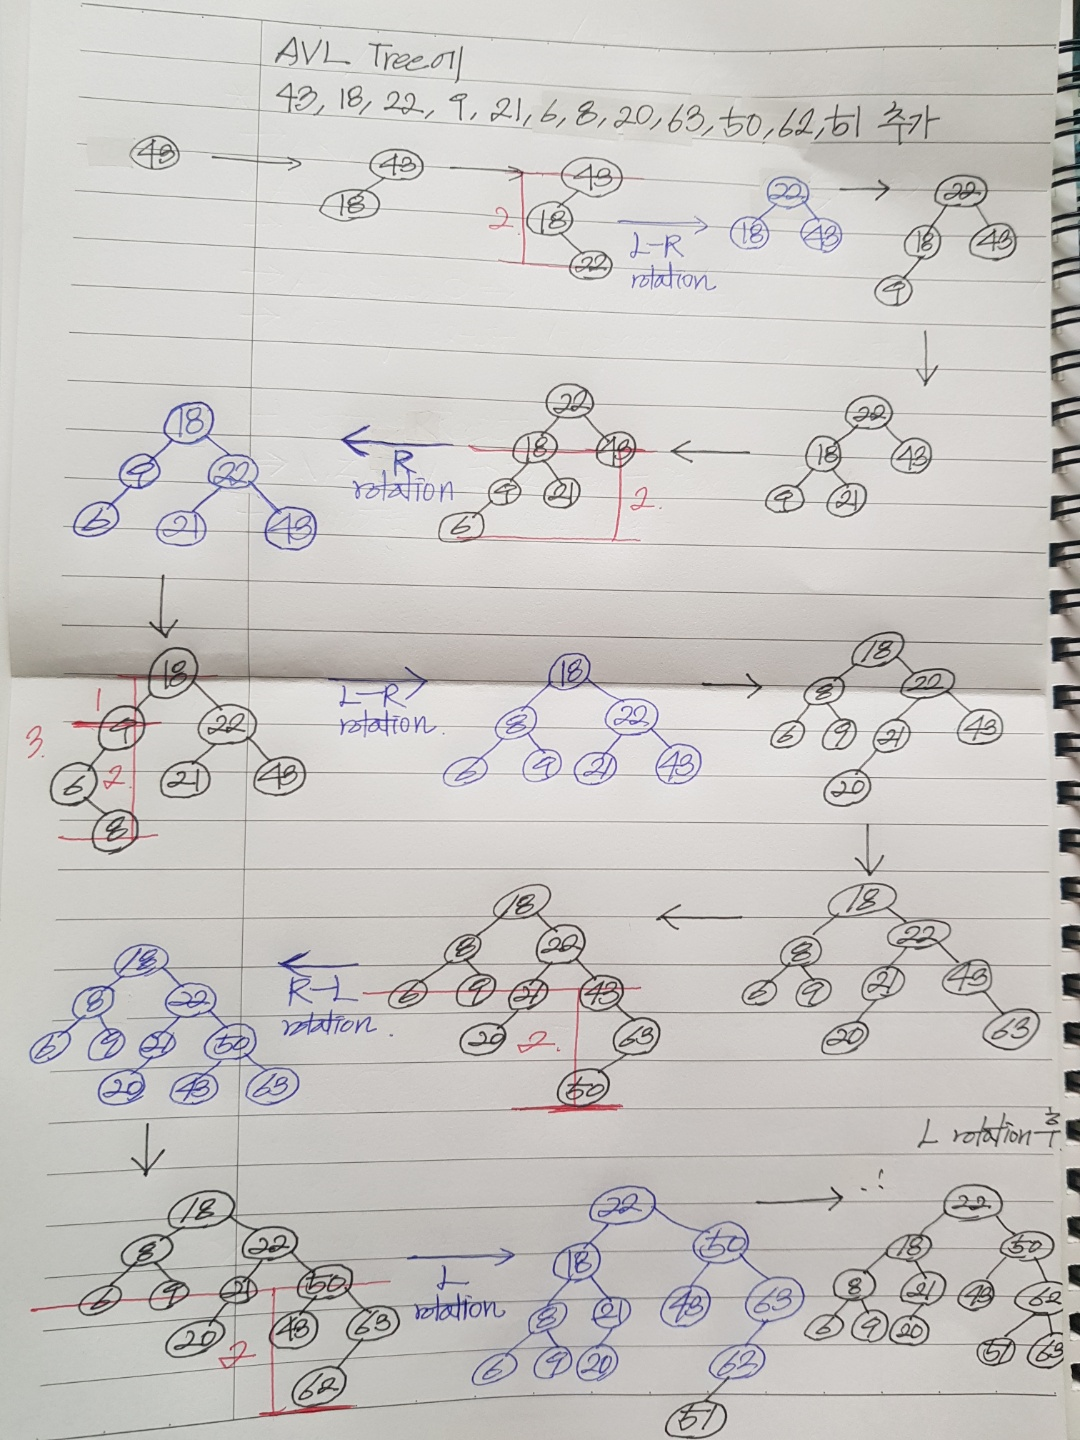 AVL Tree에
43, 18, 22, 9, 21, 6, 8, 20, 63, 50, 62, 51 추가
43
43
18
43
18
22
2.
L-R
rotation
22
18 43
22
18 43
9
22
18 43
9 21
22
18 43
9 21
6
2.
R
rotation
18
9 22
6 21 43
18
9 22
6 21 43
8
1
2.
3.
L-R
rotation.
18
8 22
6 9 21 43
18
8 22
6 9 21 43
20
18
8 22
6 9 21 43
20 63
18
8 22
6 9 21 43
20 63
50
2.
R-L
rotation.
18
8 22
6 9 21 50
20 43 63
18
8 22
6 9 21 50
20 43 63
62
2
L
rotation
22
18 50
8 21 43 63
6 9 20 62
51
L rotation 후
22
18 50
8 21 43 62
6 9 20 51 63